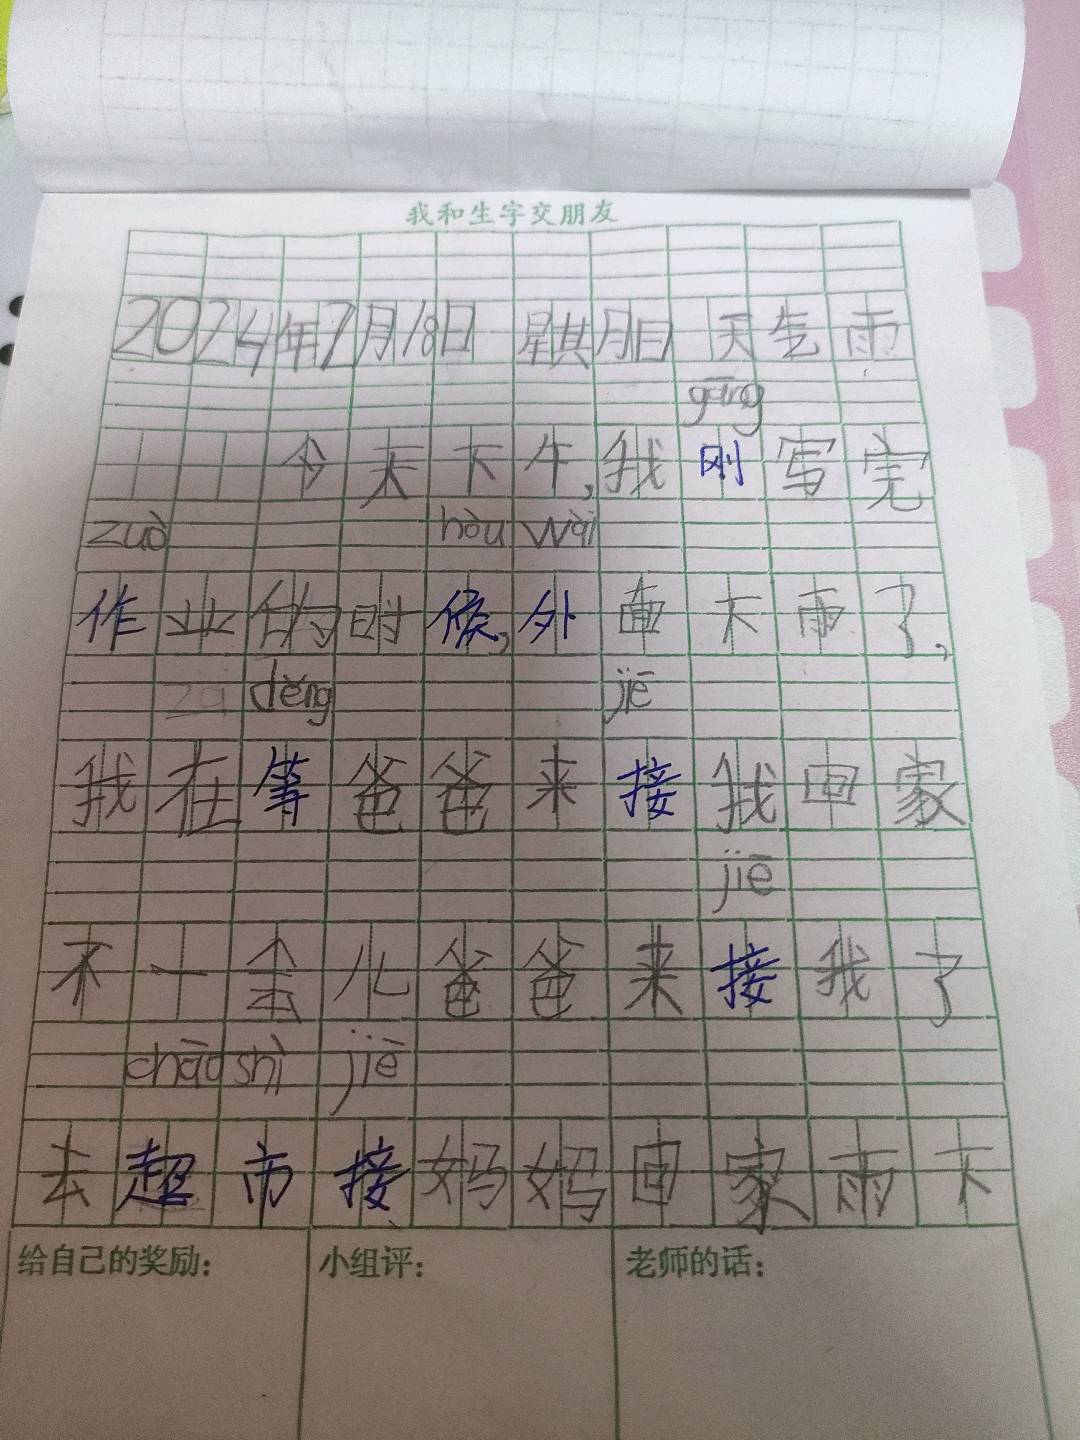 我和生字交朋友
2024年7月18日 星其月日 天气雨
gāng
今天下午,我刚写完
zuò hòu wài
作业的时候,外面下雨了,
děng jiē
我在等爸爸来接我回家
jiē
不一会儿爸爸来接我了
chāo shì jiē
去超市接妈妈回家雨下
给自己的奖励: 小组评: 老师的话: